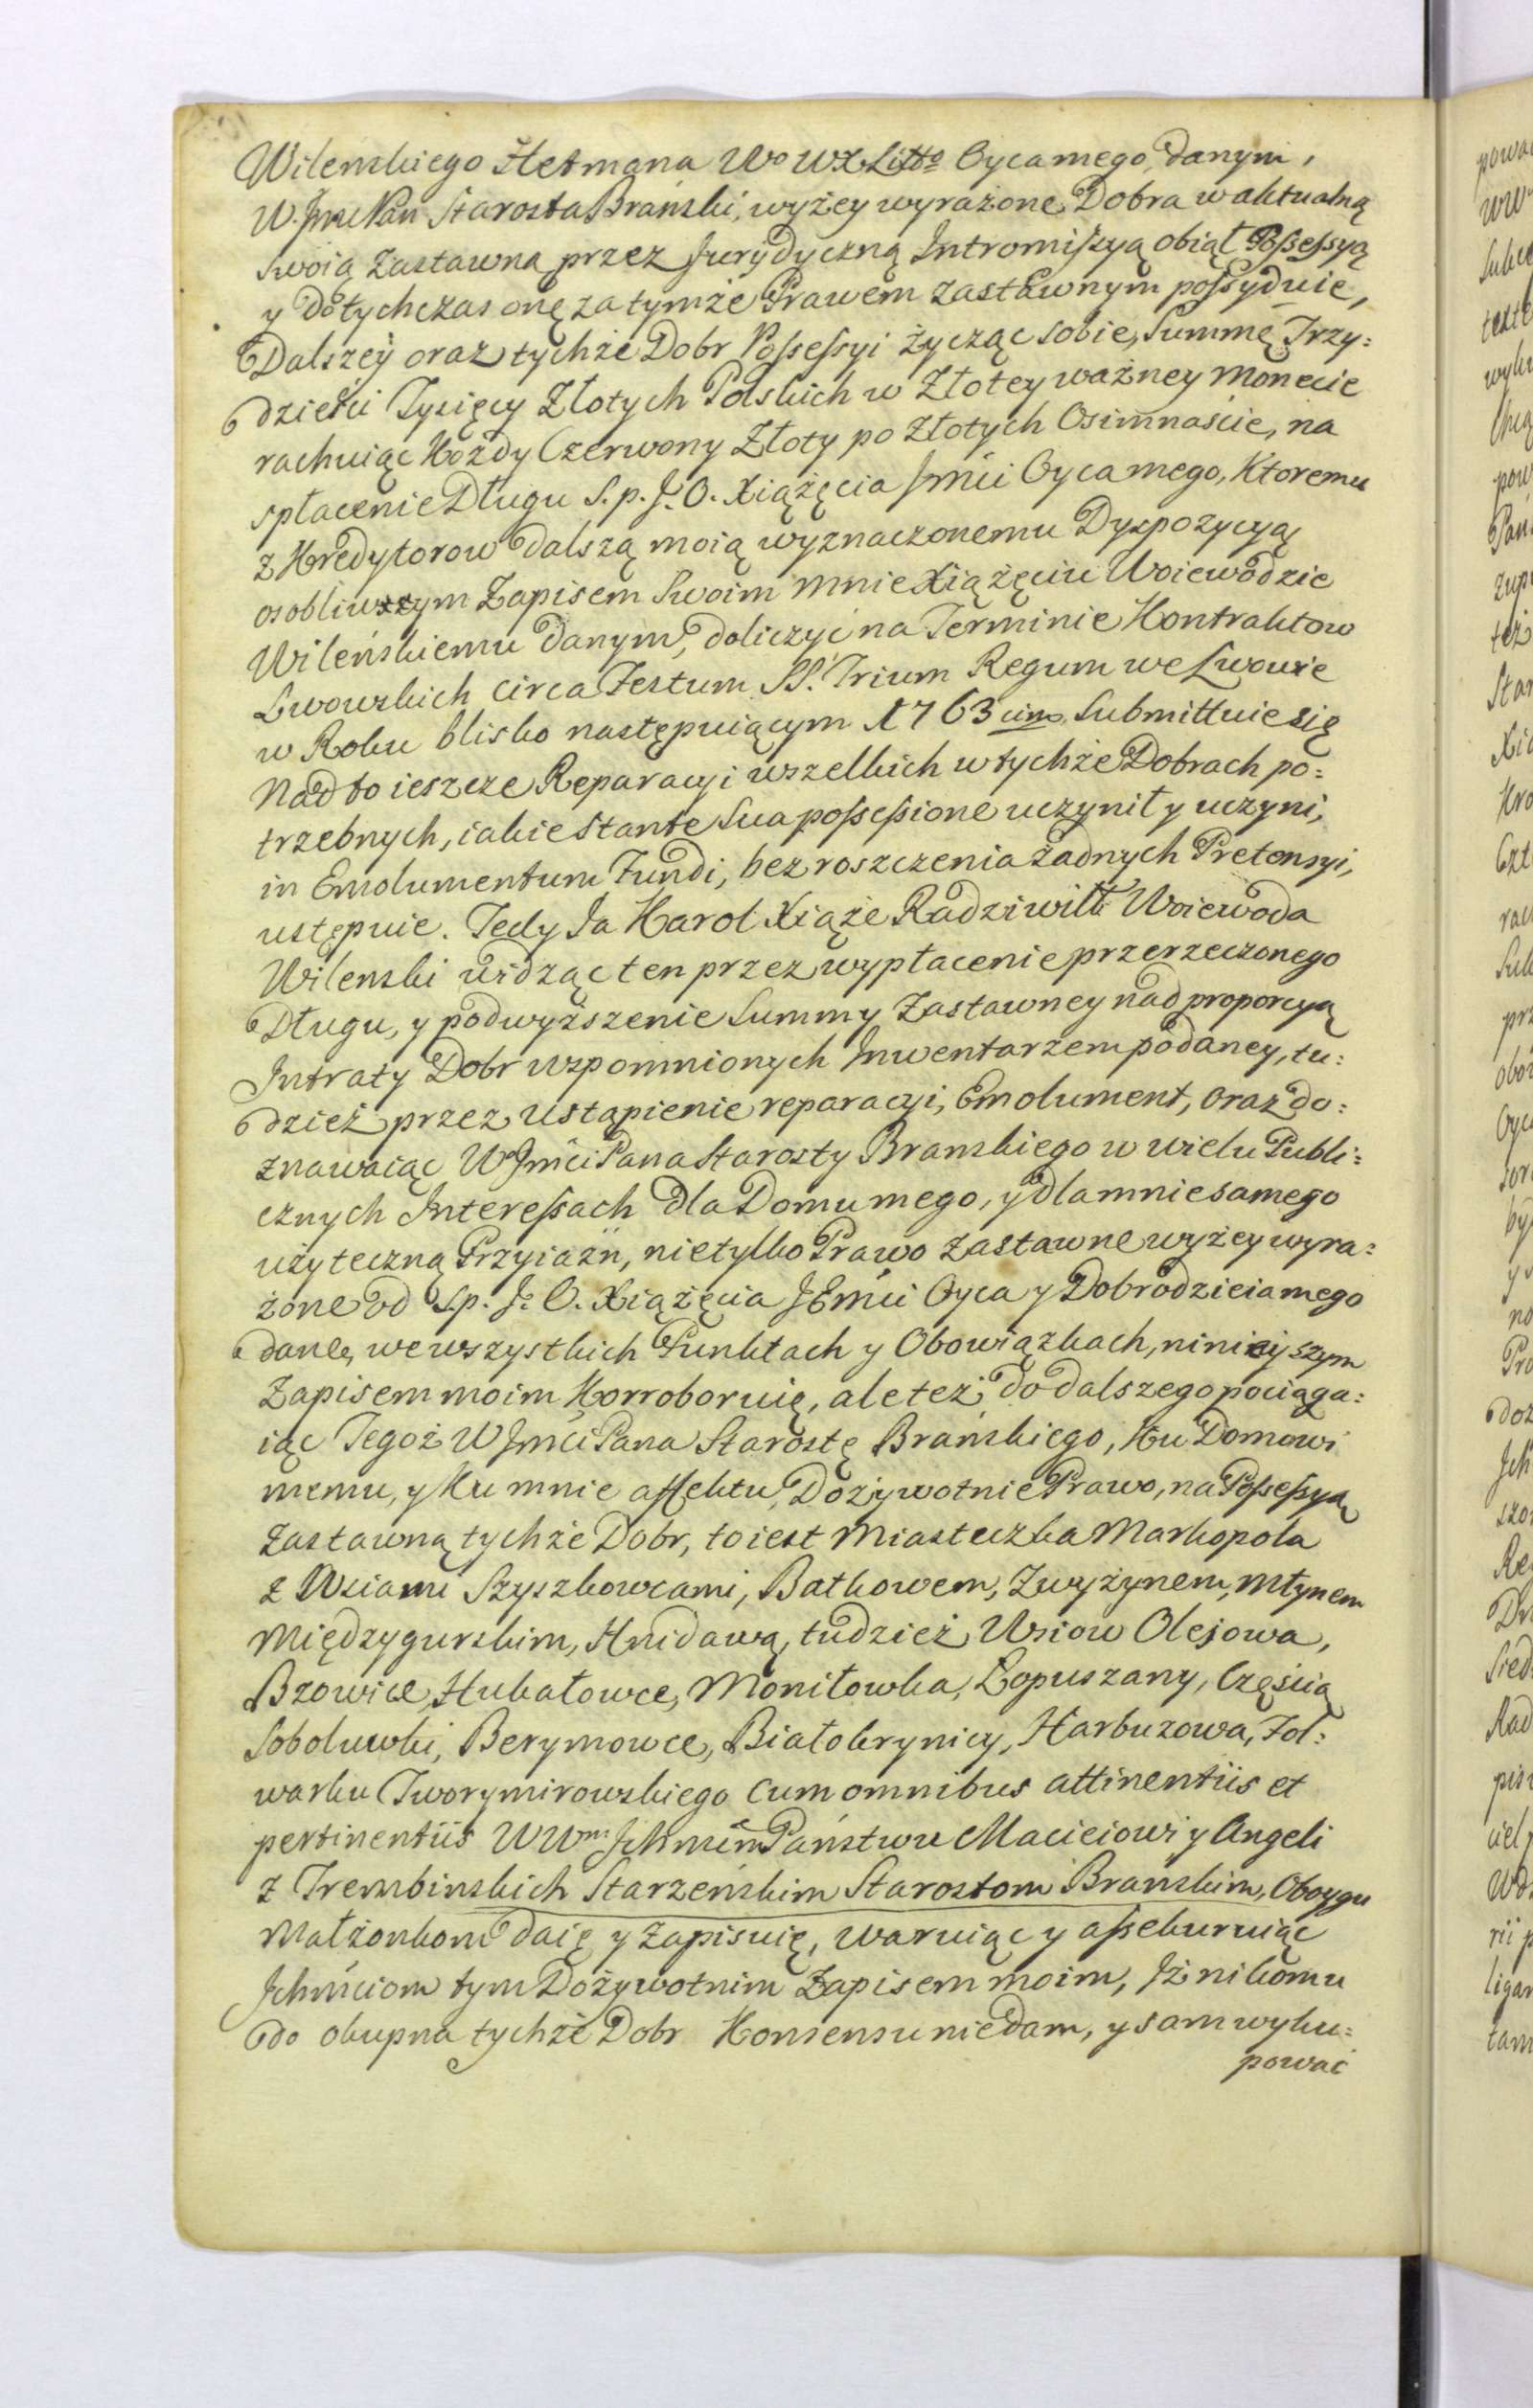 Wilenskiego Hetmana Wo WXLitto Oyca mego, danym,
W. Jmć Pan Starosta Brański, wyżey wyrażone Dobra w aktualną
swoią zastawną przez Jurydyczną Intromissyą obiął Possessyą
y dotychczas onę za tymże Prawem zastawnym possyduie,
Dalszey oraz tychże Dobr Possessyi życząc sobie, Summę Trzy:
dzieści Tysięcy Złotych Polskich w Złotey ważney Monecie
rachuiąc Kożdy Czerwony Złoty po Złotych Osimnaście, na
spłacenie Długu S. p. J. O. Xiążęcia Jmći Oyca mego, Ktoremu
z Kredytorow dalszą moią wyznaczonemu Dyspozycyą
osobliwszym Zapisem Swoim mnie Xiążęciu Woiewodzie
Wileńskiemu danym, doliczyć na Terminie Kontraktow
Lwowskich circa Festum SS. Trium Regum we Lwowie
w Roku blisko następuiącym 1763cim Submittuie się
Nadto ieszcze Reparacyi wszelkich w tychże Dobrach po:
trzebnych, iakie stante sua possessione uczynił y uczyni,
in Emolumentum Fundi, bez roszczenia żadnych Pretensyi,
ustępuie. Tedy Ja Karol Xiąże Radziwiłł Woiewoda
Wilenski widząc ten przez wypłacenie przerzeczonego
Długu, y podwyższenie Summy Zastawney nad proporcyą
Intraty Dobr wspomnionych Inwentarzem podaney, tu:
dzież przez ustąpienie reparacyi, Emolument, oraz do:
znawaiąc W Jmći Pana Starosty Branskiego w wielu Publi:
cznych Interessach dla Domu mego, y dla mnie samego
użyteczną Przyiaźń, nietylko Prawo zastawne wyżey wyra:
żone od S.p. J. O. Xiążęcia JEmći Oyca y Dobrodzieia mego
dane, we wszystkich Punktach y Obowiązkach, ninieyszym
Zapisem moim Korroboruię, ale też do dalszego pociąga:
iąc Tegoż W Jmći Pana Starostę Brańskiego, Ku Domowi
memu, y Ku mnie affektu, Dożywotnie Prawo, na Possessyą
zastawną tychże Dobr, to iest Miasteczka Markopola
z Wsiami Szyszkowcami, Batkowem, Zwyżynem, Młynem
Międzygurskim, Hnidawą, tudzież Wsiow Olejowa,
Bzowice, Hukałowce, Moniłowka, Łopuszany, Częścią
Soboluwki, Berymowce, Białokrynicy, Harbuzowa, Fol:
warku Tworymirowskiego cum omnibus attinentiis et
pertinentiis WWm Jchmćm Państwu Macieiowi y Angeli
z Trembinskich Starzeńskim Starostom Branskim, Oboygu
Małżonkom daię y zapisuię, waruiąc y assekuruiąc
Jchmćiom tym Dożywotnim Zapisem moim, Iż nikomu
do okupna tychże Dobr Konsensu nie dam, y sam wyku:
pować